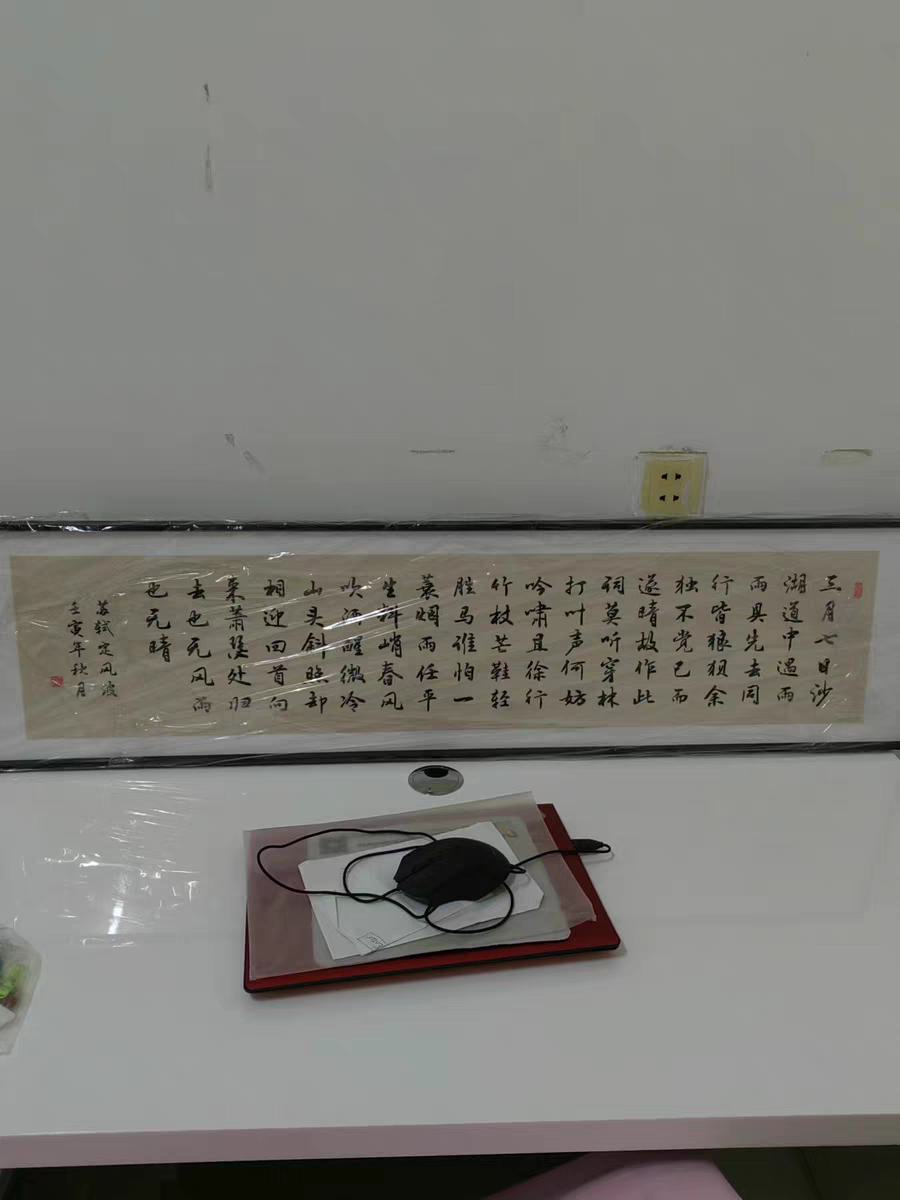 三月七日沙
湖道中遇雨
雨具先去同
行皆狼狈余
独不觉已而
遂晴故作此
词莫听穿林
打叶声何妨
吟啸且徐行
竹杖芒鞋轻
胜马谁怕一
蓑烟雨任平
生料峭春风
吹酒醒微冷
山头斜照却
相迎回首向
来萧瑟处归
去也无风雨
也无晴
苏轼定风波
壬寅年秋月